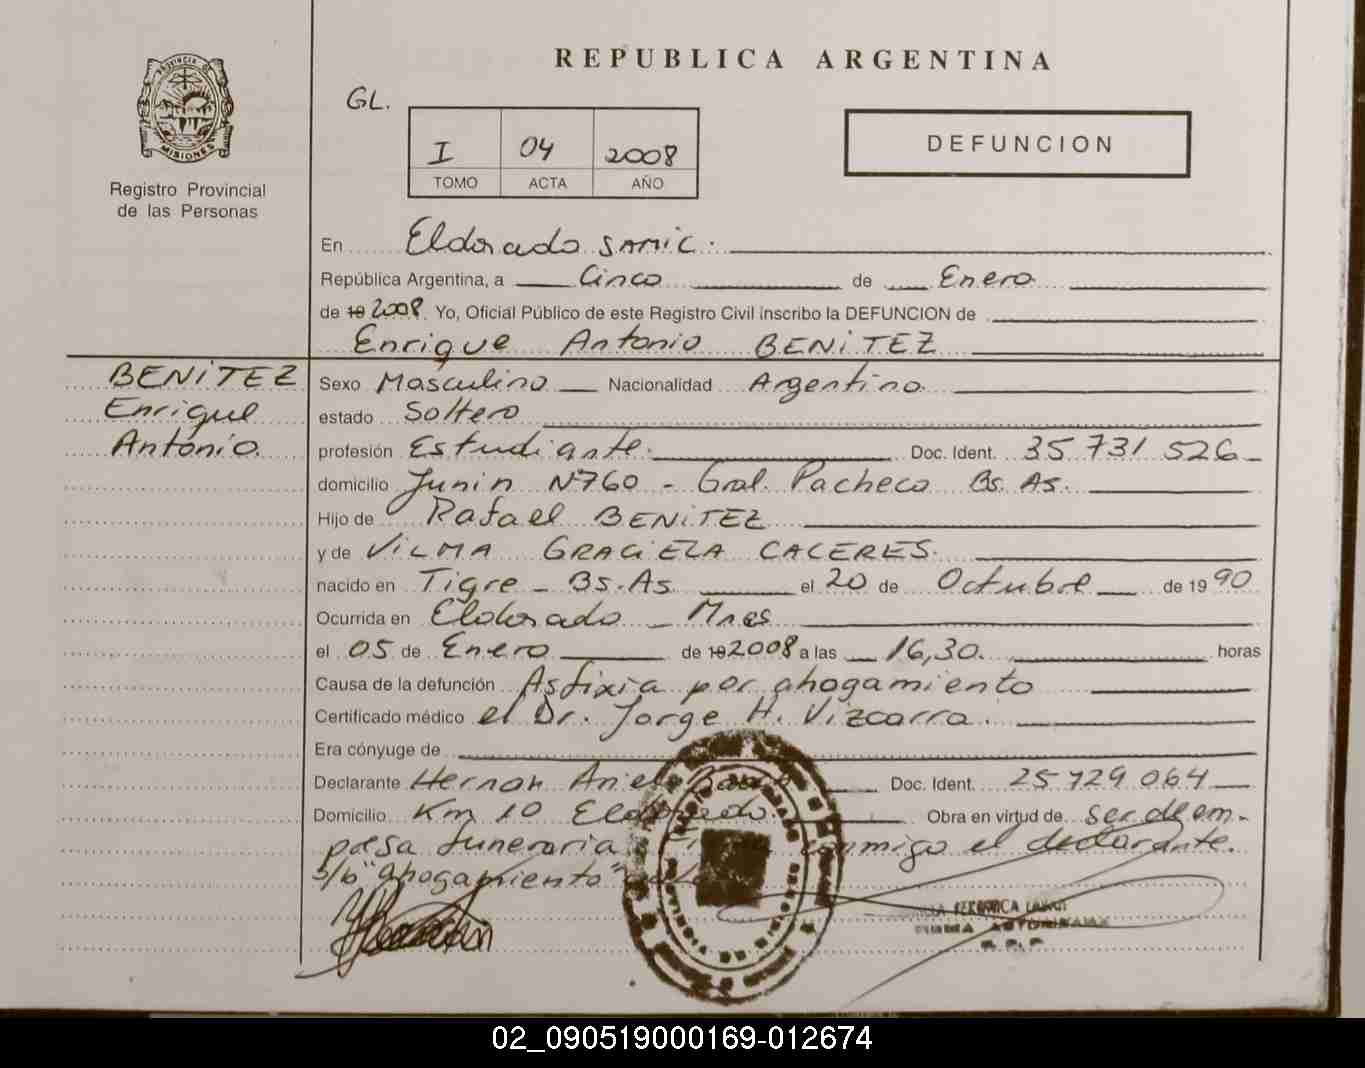 REPUBLICA ARGENTINA
PROVINCIA DE
MISIONES
Registro Provincial
de las Personas
GL.
I 04 2008
TOMO ACTA AÑO
DEFUNCION
En Eldorado SAMIC.
República Argentina, a Cinco de Enero
de 19 2008. Yo, Oficial Público de este Registro Civil inscribo la DEFUNCION de
Enrique Antonio BENiTEZ
BENiTEZ
Enrique
Antonio.
Sexo Masculino Nacionalidad Argentino.
estado Soltero
profesión Estudiante. Doc. Ident. 35 731 526
domicilio Junin Nº760 - Gral. Pacheco Bs. As.
Hijo de Rafael BENiTEZ
y de ViLMA GRACiELA CACERES.
nacido en Tigre - Bs.As el 20 de Octubre de 19 90
Ocurrida en Eldorado - Mnes
el 05 de Enero de 19 2008 a las 16,30. horas
Causa de la defunción Asfixia por ahogamiento
Certificado médico el Dr. Jorge H. Vizcarra.
Era cónyuge de
Declarante Hernan Ariel Doc. Ident. 25 729 064
Domicilio Km 10 Eldorado. Obra en virtud de ser de em-
presa funeraria Firma conmigo el declarante.
S/b "ahogamiento"
02_090519000169-012674